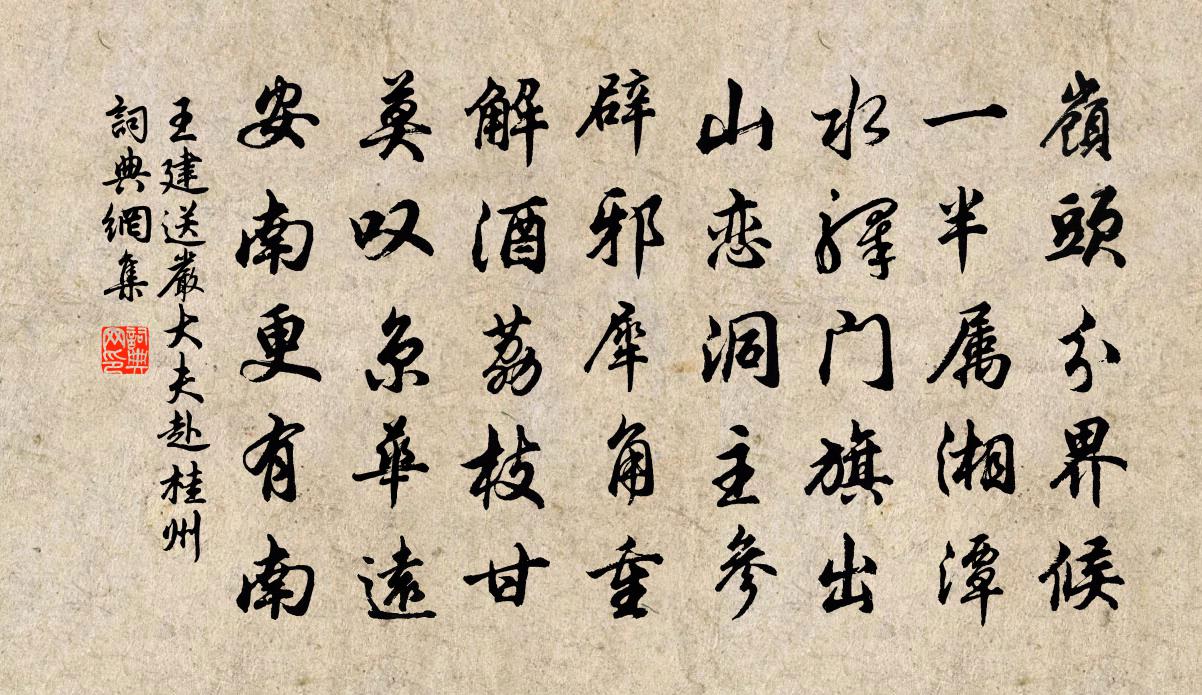 嶺頭分界候
一半属湘潭
水驛門旗出
山恋洞主參
辟邪犀角重
解酒荔枝甘
莫叹京華遠
安南更有南
王建送嚴大夫赴桂州
詞典網集
詞典网印